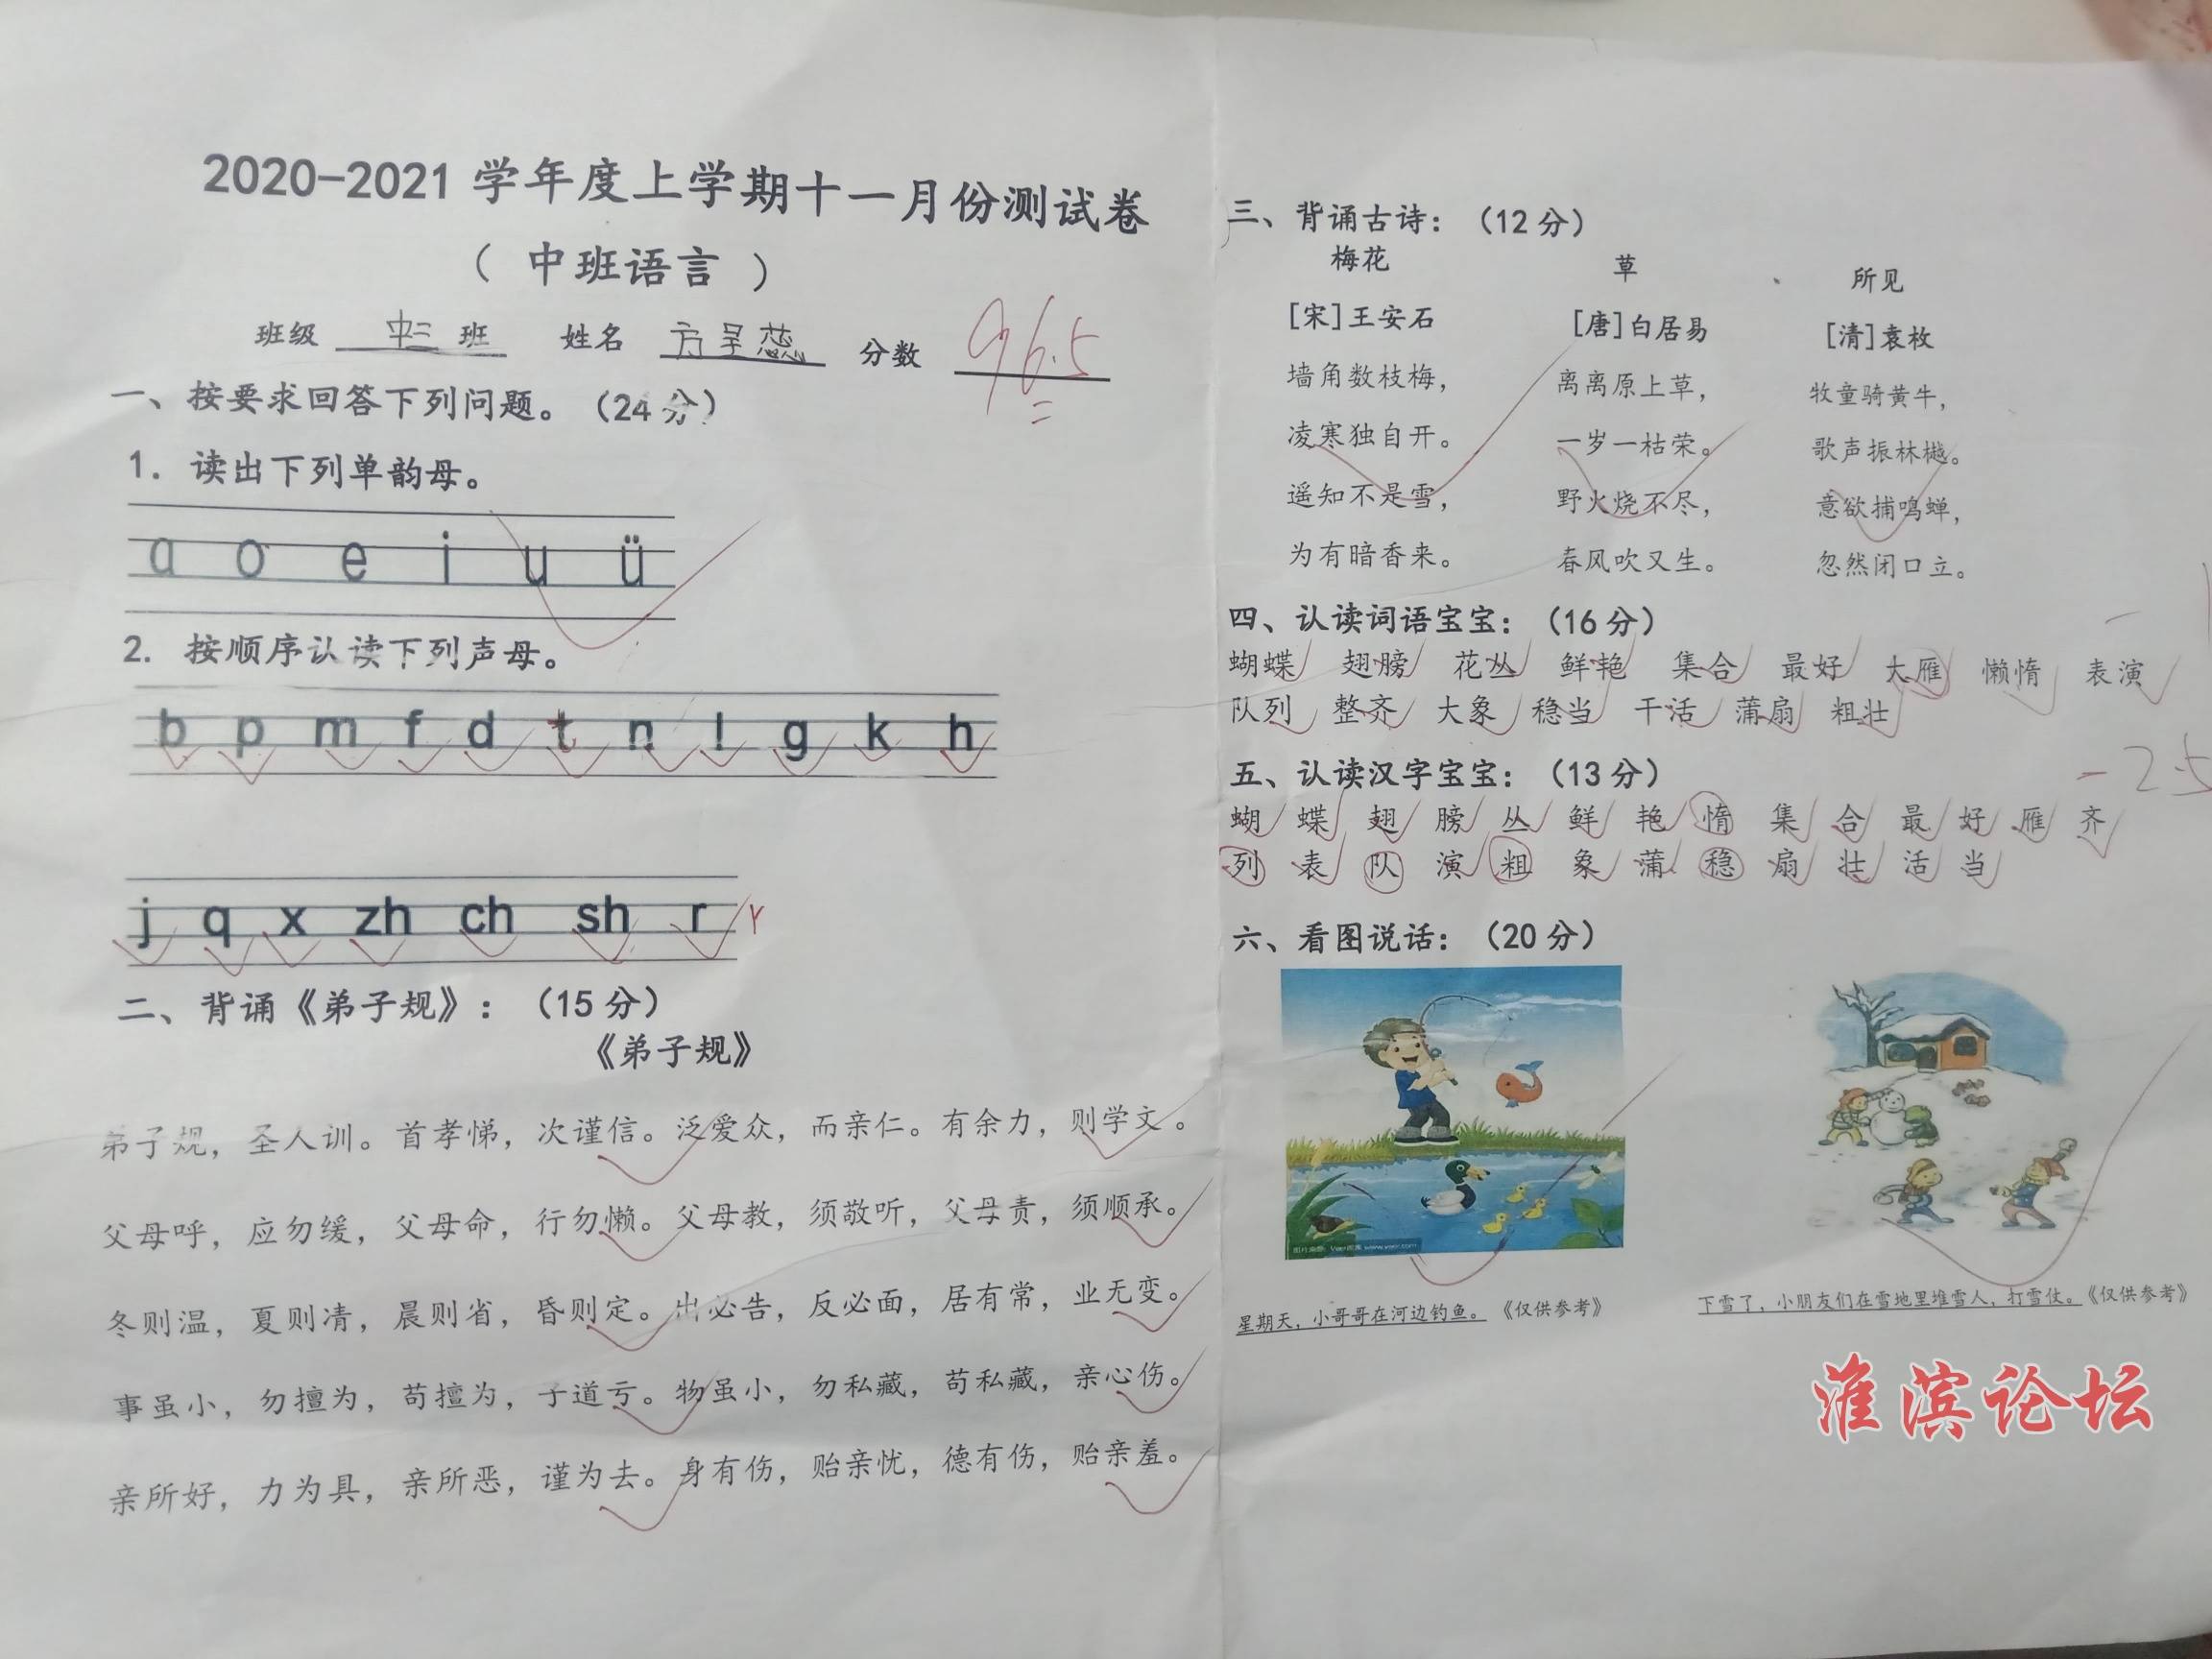 2020-2021 学年度上学期十一月份测试卷
（ 中班语言 ）
班级 中三 班 姓名 方呈蕊 分数 96.5
一、按要求回答下列问题。（24 分）
1. 读出下列单韵母。
a o e i u ü
2. 按顺序认读下列声母。
b p m f d t n l g k h
j q x zh ch sh r
二、背诵《弟子规》：（15 分）
《弟子规》
弟子规，圣人训。首孝悌，次谨信。泛爱众，而亲仁。有余力，则学文。
父母呼，应勿缓，父母命，行勿懒。父母教，须敬听，父母责，须顺承。
冬则温，夏则凊，晨则省，昏则定。出必告，反必面，居有常，业无变。
事虽小，勿擅为，苟擅为，子道亏。物虽小，勿私藏，苟私藏，亲心伤。
亲所好，力为具，亲所恶，谨为去。身有伤，贻亲忧，德有伤，贻亲羞。
三、背诵古诗：（12 分）
梅花
[宋]王安石
墙角数枝梅，
凌寒独自开。
遥知不是雪，
为有暗香来。
草
[唐]白居易
离离原上草，
一岁一枯荣。
野火烧不尽，
春风吹又生。
所见
[清]袁枚
牧童骑黄牛，
歌声振林樾。
意欲捕鸣蝉，
忽然闭口立。
四、认读词语宝宝：（16 分） -1
蝴蝶 翅膀 花丛 鲜艳 集合 最好 大雁 懒惰 表演
队列 整齐 大象 稳当 干活 蒲扇 粗壮
五、认读汉字宝宝：（13 分） -2.5
蝴 蝶 翅 膀 丛 鲜 艳 惰 集 合 最 好 雁 齐
列 表 队 演 粗 象 蒲 稳 扇 壮 活 当
六、看图说话：（20 分）
星期天，小哥哥在河边钓鱼。《仅供参考》
下雪了，小朋友们在雪地里堆雪人，打雪仗。《仅供参考》
淮滨论坛